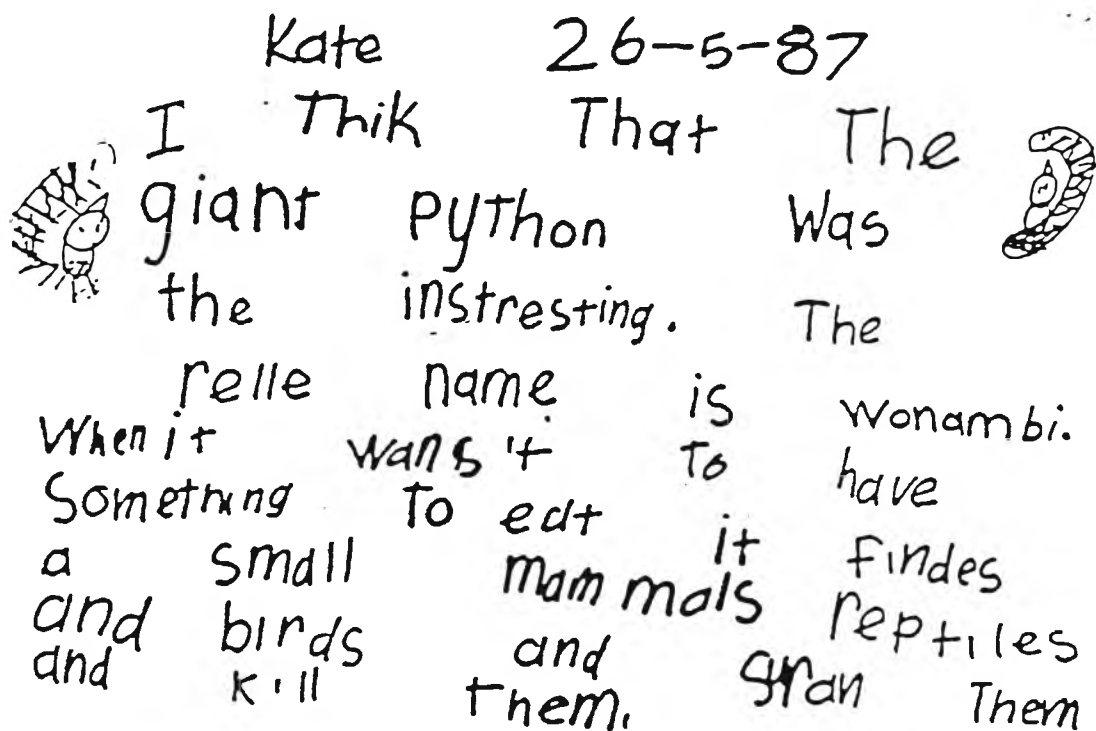 Kate 26-5-87
I Thik That The
giant python Was
the instresting. The
relle name is wonambi.
When it wans't To have
Something To eat it findes
a small mammals reptiles
and birds and gran Them
and kill them.